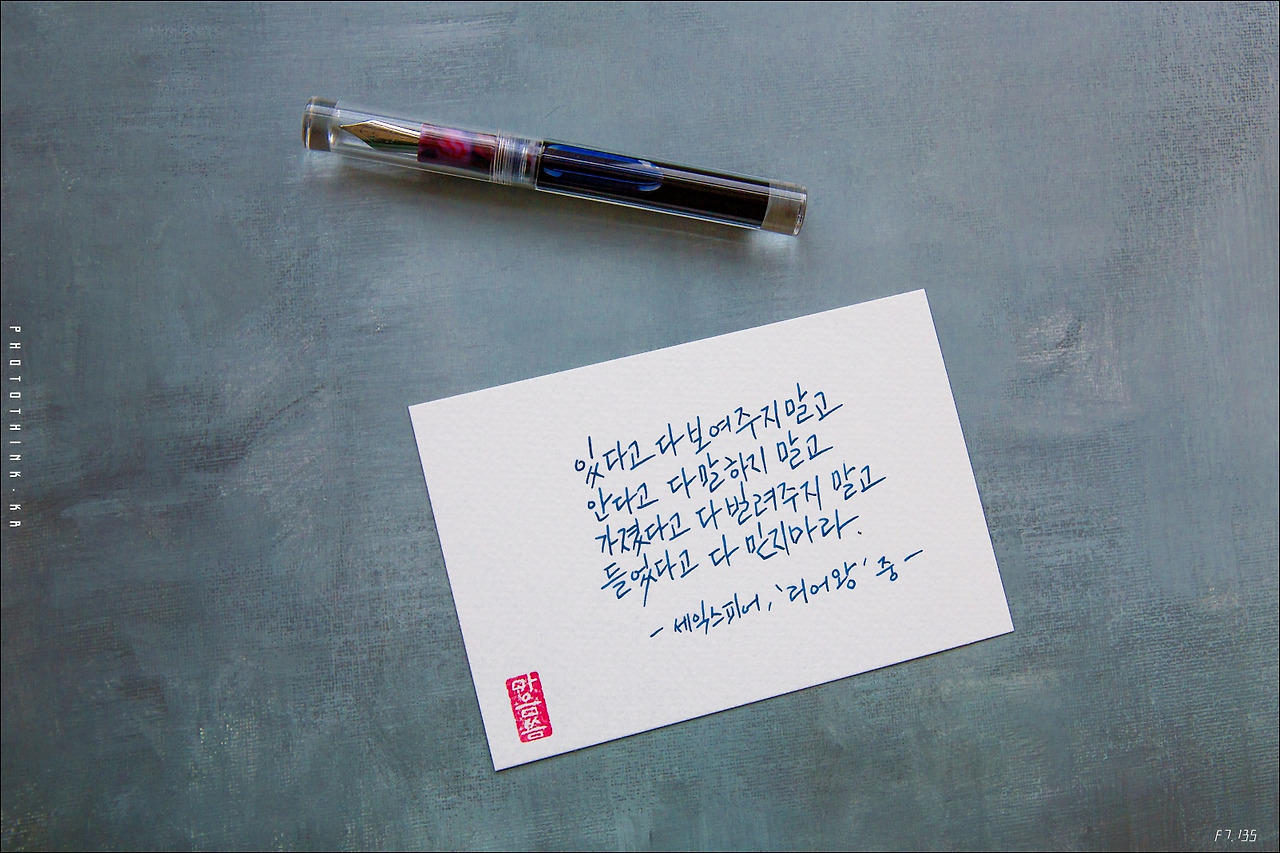 있다고 다 보여주지 말고
안다고 다 말하지 말고
가졌다고 다 빌려주지 말고
들었다고 다 믿지마라.
- 세익스피어, '리어왕' 중 -
PHOTOTHINK·KA
F7.135